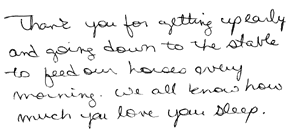 Thank you for getting up early
and going down to the stable
to feed our horses every
morning. We all know how
much you love your sleep.